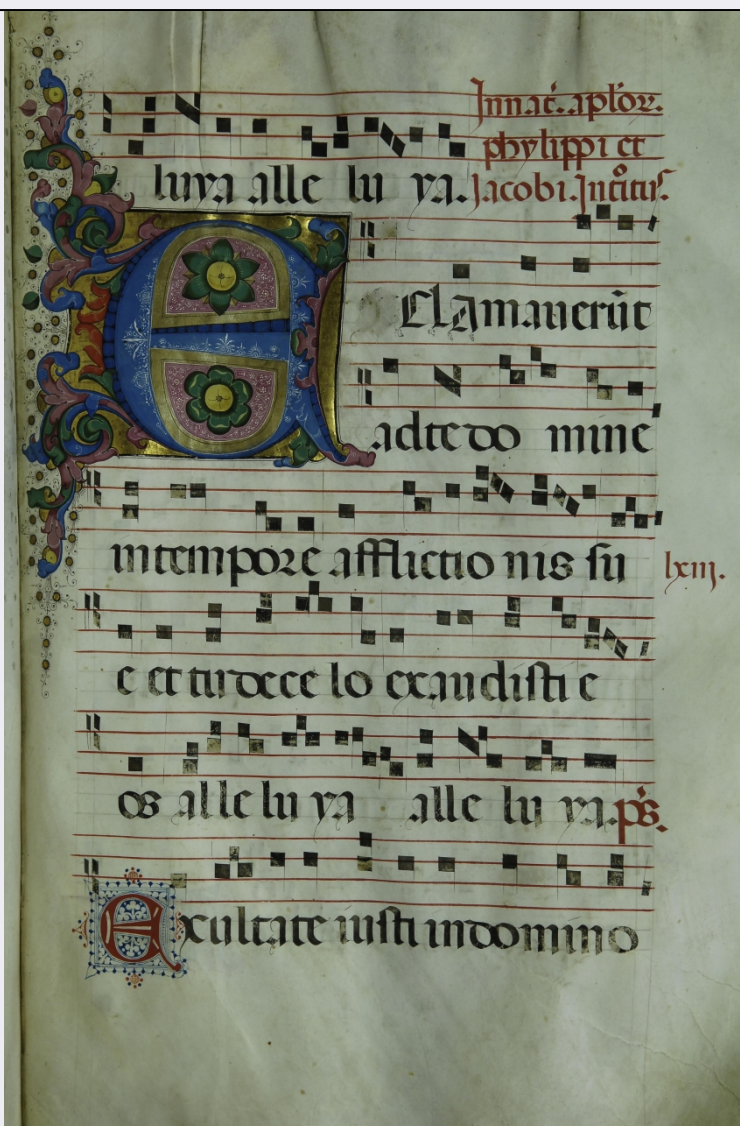 In nat. aplor.
phylippi et
luya alle lu ya. Jacobi. Introitus.
E Clamauerūt
ad te do mine
in tempore afflictio nis su
lxiij.
e et tu de ce lo exaudisti e
os al le lu ya alle lu ya. ps.
Exultate iusti in domino